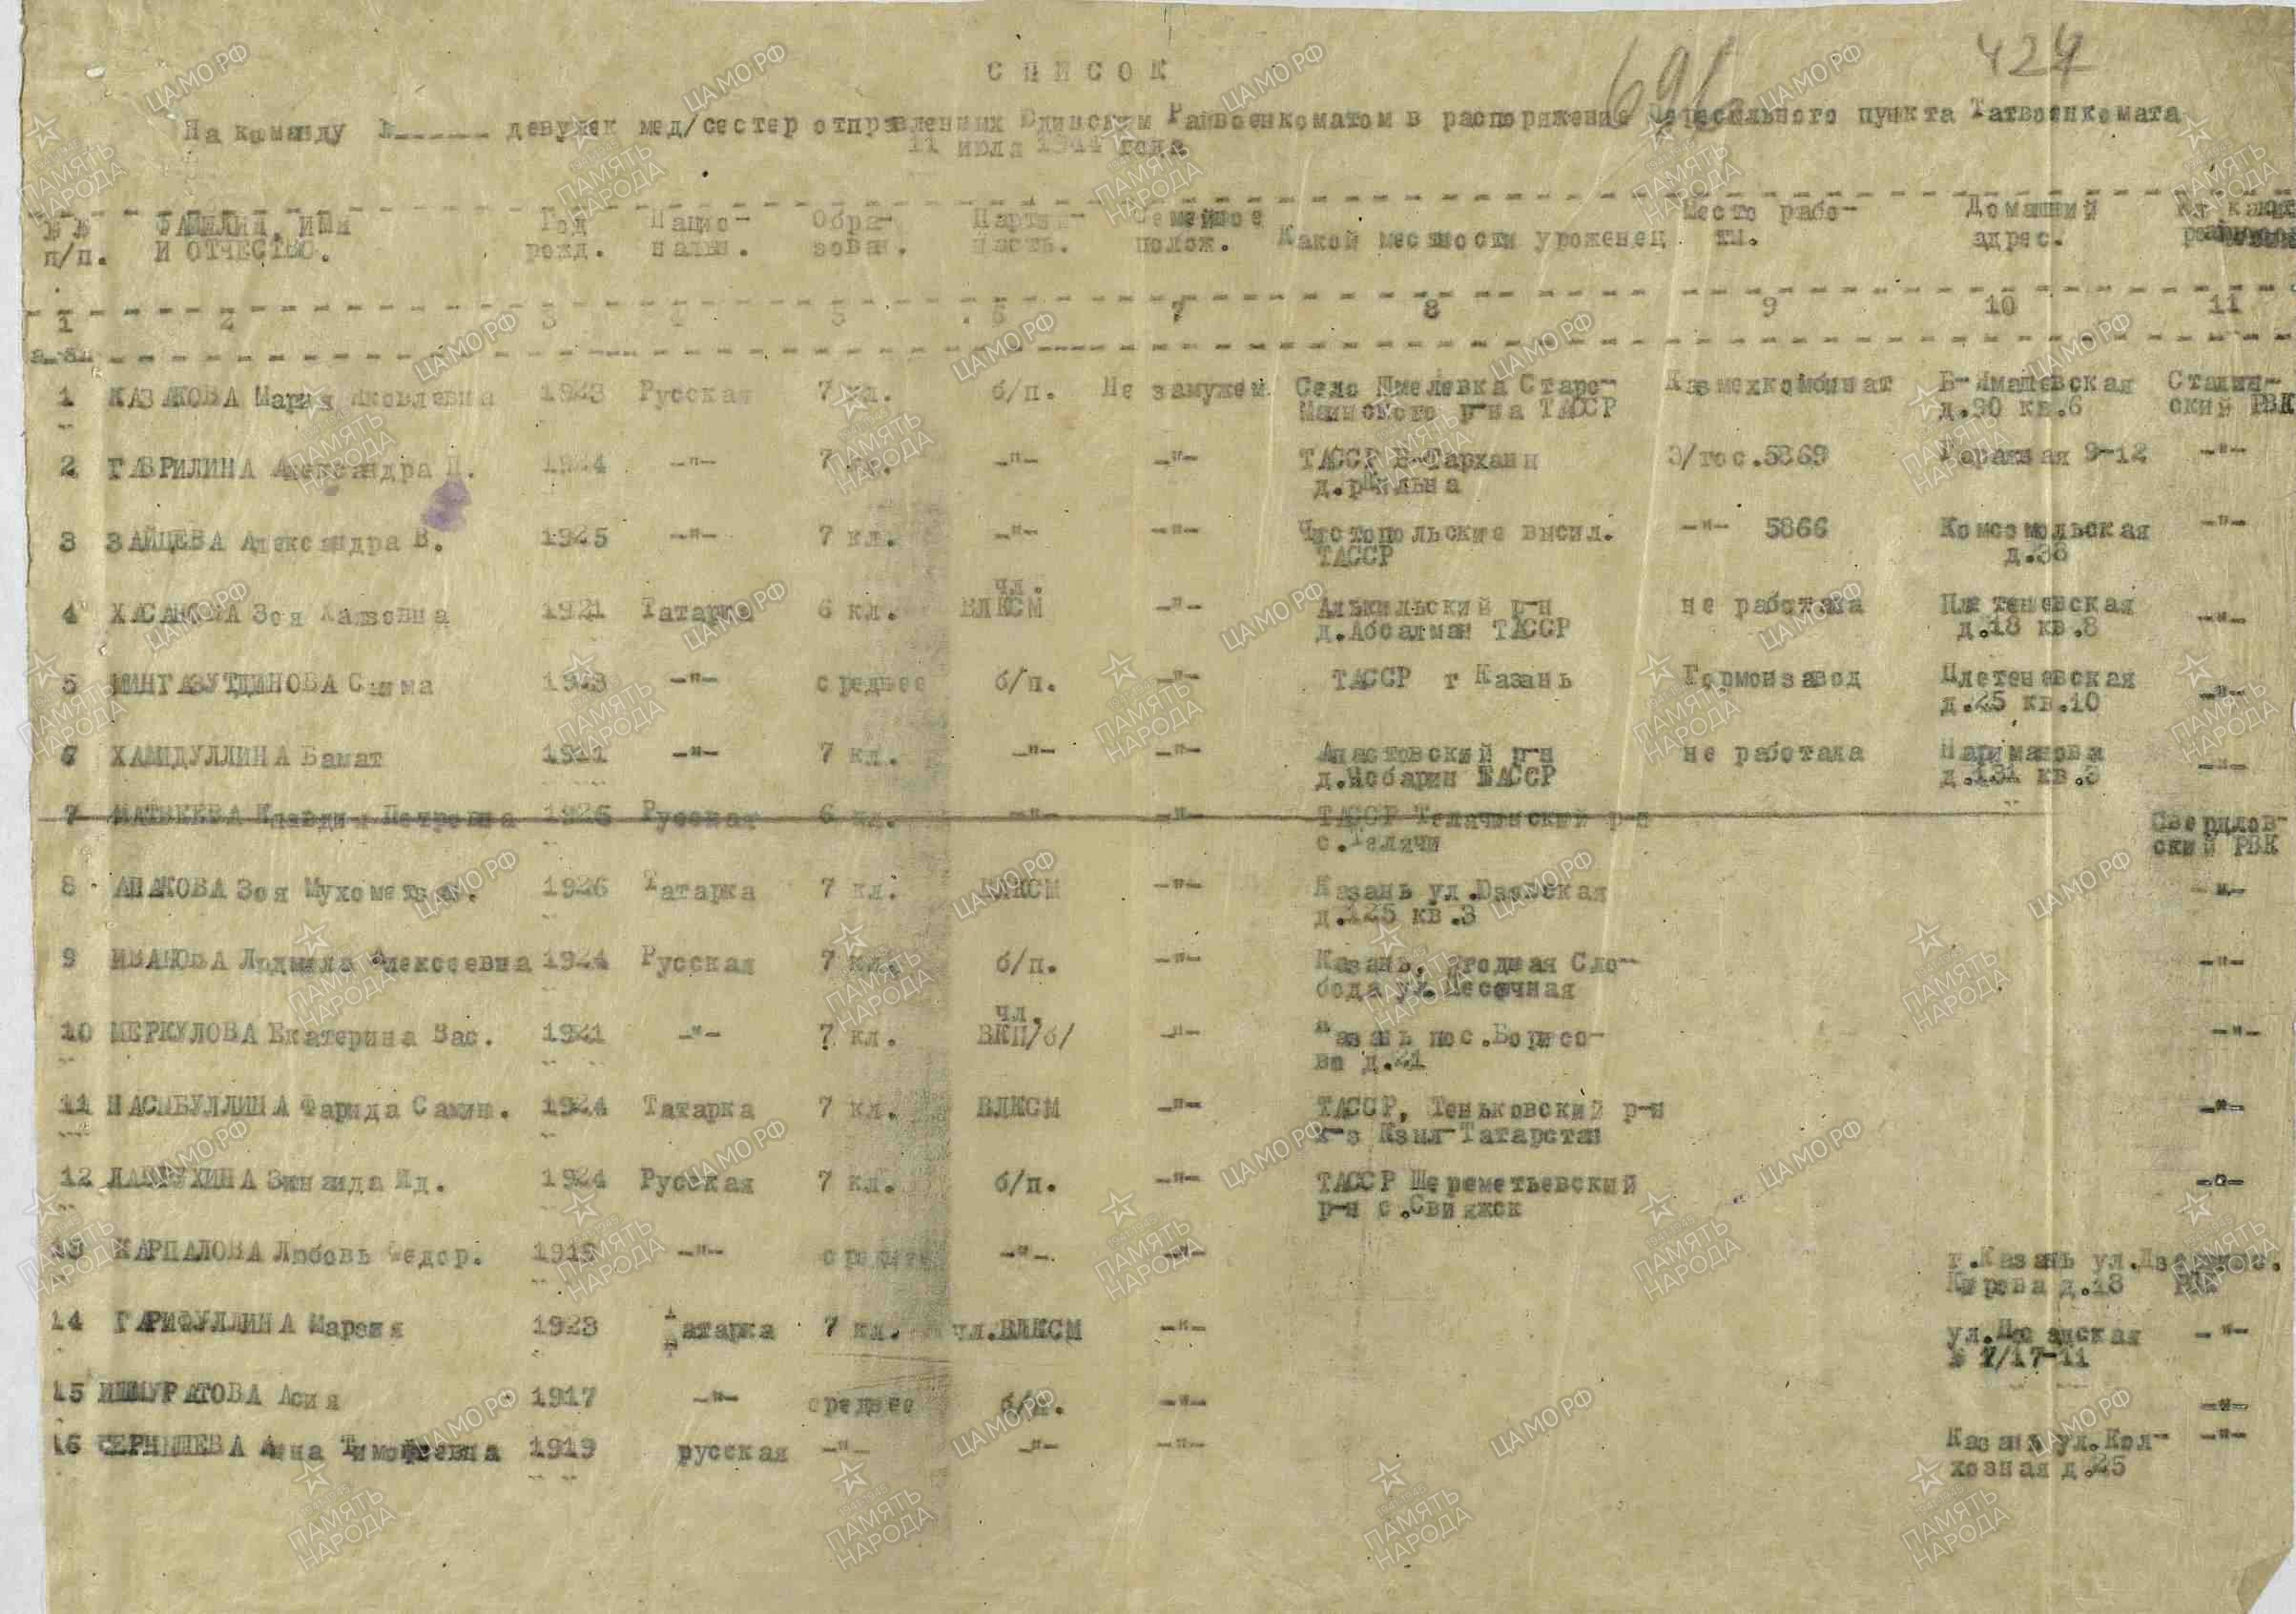 424
СПИСОК
На команду №_____ девушек мед/сестер отправленных Юдинским Райвоенкоматом в распоряжение пункта Татвоенкомата
11 июля 1944 года
№№ п/п. ФАМИЛИЯ, ИМЯ И ОТЧЕСТВО. Год рожд. Нацио-нальн. Обра-зован. Партий-ность. Семейное полож. Какой местности уроженец Место рабо-ты. Домашний адрес.
1 2 3 4 5 6 7 8 9 10 11
1 КАЗАКОВА Мария Яковлевна 1923 Русская 7 кл. б/п. Не замужем Село Хмелевка Старо- Казмехкомбинат Б-Ямашевская Сталин-
Майнского р-на ТАССР д.90 кв.6 ский РВК
2 ГАВРИЛИНА Александра П. 1924 -"- 7 кл. -"- -"- ТАССР В-Тархани 3/гос.5869 9-12 -"-
3 ЗАЙЦЕВА Александра В. 1925 -"- 7 кл. -"- -"- Чистопольские высил. -"- 5866 Комсомольская -"-
ТАССР д.38
чл.
4 ХАСАНОВА Зоя 1921 Татарка 6 кл. ВЛКСМ -"- Алькильский р-н не работала Плетеневская -"-
д.Абсалман ТАССР д.18 кв.8
5 МИНГАЗУТДИНОВА 1923 -"- среднее б/п. -"- ТАССР г Казань Гормонзавод Плетеневская -"-
д.25 кв.10
6 ХАМИДУЛЛИНА Бамат 1911 -"- 7 кл. -"- -"- Апастовский р-н не работала Нариманова -"-
д.131 кв.3
7 МАТВЕЕВА Клавдия Петровна 1926 Русская 6 кл. -"- -"- ТАССР Теличинский р-н Свердлов-
с.Теличи ский РВК
8 АПАКОВА Зоя Мухометзян. 1926 Татарка 7 кл. ВЛКСМ -"- Казань -"-
д.125 кв.3
9 ИВАНОВА Людмила Алексеевна 1924 Русская 7 кл. б/п. -"- Казань, Ягодная Сло- -"-
бода ул.Песочная
чл.
10 МЕРКУЛОВА Екатерина Вас. 1921 -"- 7 кл. ВКП/б/ -"- Казань пос.Борисо- -"-
во д.21
11 НАСЫБУЛЛИНА Фарида 1924 Татарка 7 кл. ВЛКСМ -"- ТАССР, Теньковский р-н -"-
к-з Кзыл-Татарстан
12 ЛАВРУХИНА Зинаида Ид. 1924 Русская 7 кл. б/п. -"- ТАССР Шереметьевский -"-
р-н с.Свияжск
13 КАРПАЛОВА Любовь Федор. 1919 -"- среднее -"- -"- г.Казань ул.
Кирова д.18 РВК
14 ГАРИФУЛЛИНА Марсия 1923 Татарка 7 кл. чл.ВЛКСМ -"- -"-
15 ИШМУРАТОВА Асия 1917 -"- среднее б/п. -"- -"-
16 Анна Тимофеевна 1919 русская -"- -"- -"- Казань ул.Кол- -"-
хозная д.25
ЦАМО.РФ
ПАМЯТЬ
НАРОДА